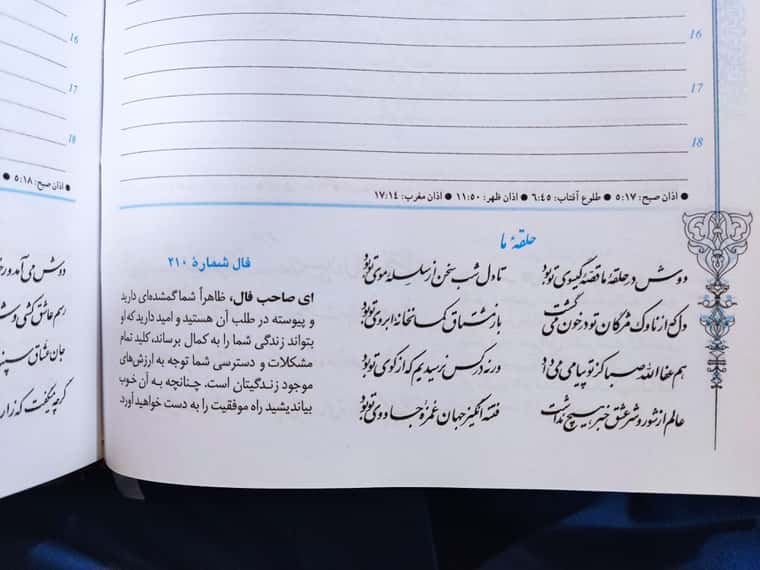 16
16
17
17
18
18
● اذان صبح: ۵:۱۷ ● طلوع آفتاب: ۶:۴۵ ● اذان ظهر: ۱۱:۵۰ ● اذان مغرب: ۱۷:۱۴
● اذان صبح: ۵:۱۸ ●
حلقهٔ ما
دوش در حلقهٔ ما قصهٔ گیسوی تو بود
تا دل شب سخن از سلسلهٔ موی تو بود
دل که از ناوک مژگان تو در خون می‌گشت
باز مشتاق کمانخانهٔ ابروی تو بود
هم عفا الله صبا کز تو پیامی می‌داد
ورنه در کس نرسیدیم که از کوی تو بود
عالم از شور و شر عشق خبر هیچ نداشت
فتنه انگیز جهان غمزهٔ جادوی تو بود
فال شمارهٔ ۲۱۰
ای صاحب فال، ظاهراً شما گمشده‌ای دارید
و پیوسته در طلب آن هستید و امید دارید که او
بتواند زندگی شما را به کمال برساند، کلید تمام
مشکلات و دسترسی شما توجه به ارزش‌های
موجود زندگیتان است. چنانچه به آن خوب
بیاندیشید راه موفقیت را به دست خواهید آورد.
دوش می‌آمد و
رسم عاشق کشی و
جان عشاق سپند
گرچه می‌گفت که زارت